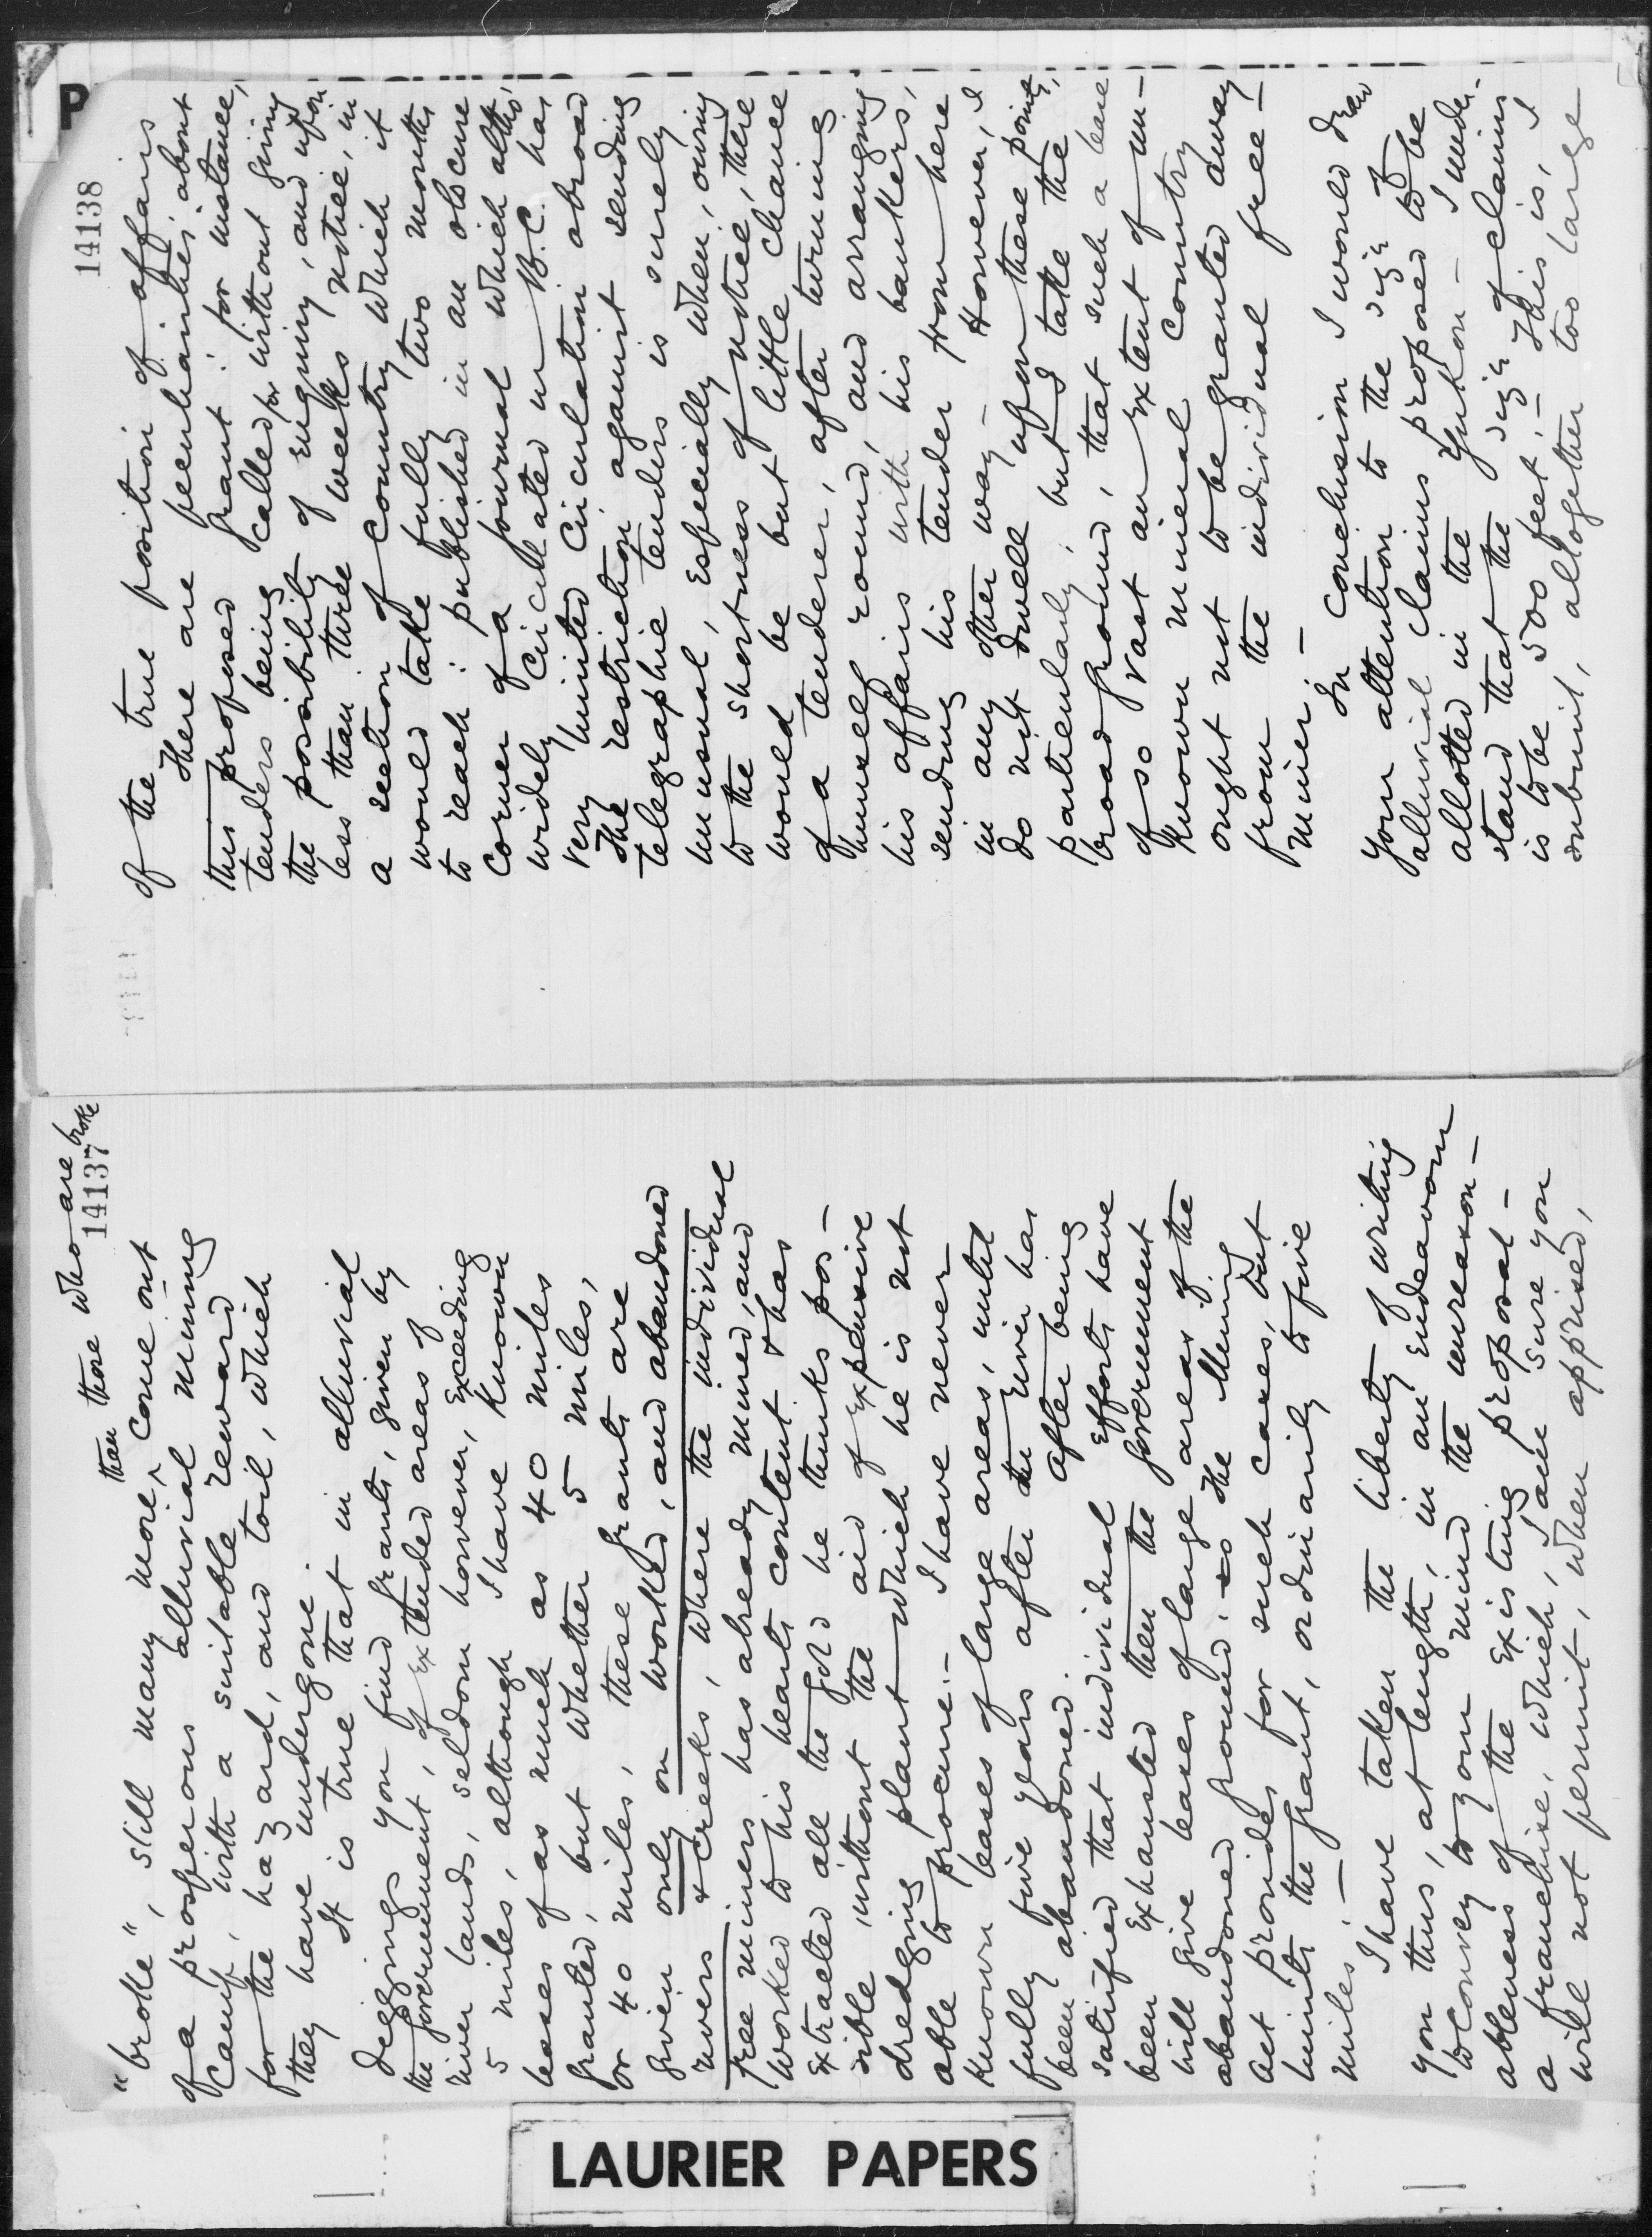 than those who are broke
14137
"broke", still many more, come out
of a prosperous alluvial mining
camp, with a suitable reward
for the hazard, and toil, which
they have undergone.
It is true that in alluvial
diggings you find grants, given by
the government, of extended areas of
river lands, seldom however, exceeding
5 miles, although I have known
leases of as much as 40 miles
granted, but whether 5 miles,
or 40 miles, these grants are
given only on worked, and abandoned
rivers & creeks, where the individual
free miners has already mined, and
worked to his hearts content & has
extracted all the gold he thinks pos-
sible without the aid of expensive
dredging plant which he is not
able to procure.- I have never
known leases of large areas, until
fully five years after the river has
been abandoned. after being
satisfied that individual efforts have
been exhausted then the government
will give leases of large areas of the
abandoned ground. The Mining
Act provides for such cases, but
limits the grant, ordinarily to five
miles.-
I have taken the liberty of writing
you thus, at length, in an endeavour
to convey to your mind the unreason-
ableness of the existing proposal-
a franchise, which, I am sure you
will not permit, when apprised,
14138
of the true position of affairs
There are peculiarities about
this proposed grant: for instance,
tenders being called for without giving
the possibility of enquiry, and upon
less than three weeks notice, in
a section of country which it
would take fully two months
to reach: published in an obscure
corner of a journal which altho'
widely circulated in B.C. has
very limited circulation abroad
The restriction against sending
telegraphic tenders is surely
unusual, especially when, owing
to the shortness of notice, there
would be but little chance
of a tenderer, after turning
himself round, and arranging
his affairs with his bankers,
sending his tender from here
in any other way- However, I
do not dwell upon these points,
particularly, but I take the
broad ground, that such a lease
of so vast an extent of un-
known mineral country
ought not to be granted away
from the individual free-
miner.-
In conclusion I would draw
your attention to the size of
alluvial claims proposed to be
allotted in the Yukon- I under-
stand that the size of claims
is to be 500 feet.- This is, I
submit, altogether too large
LAURIER PAPERS